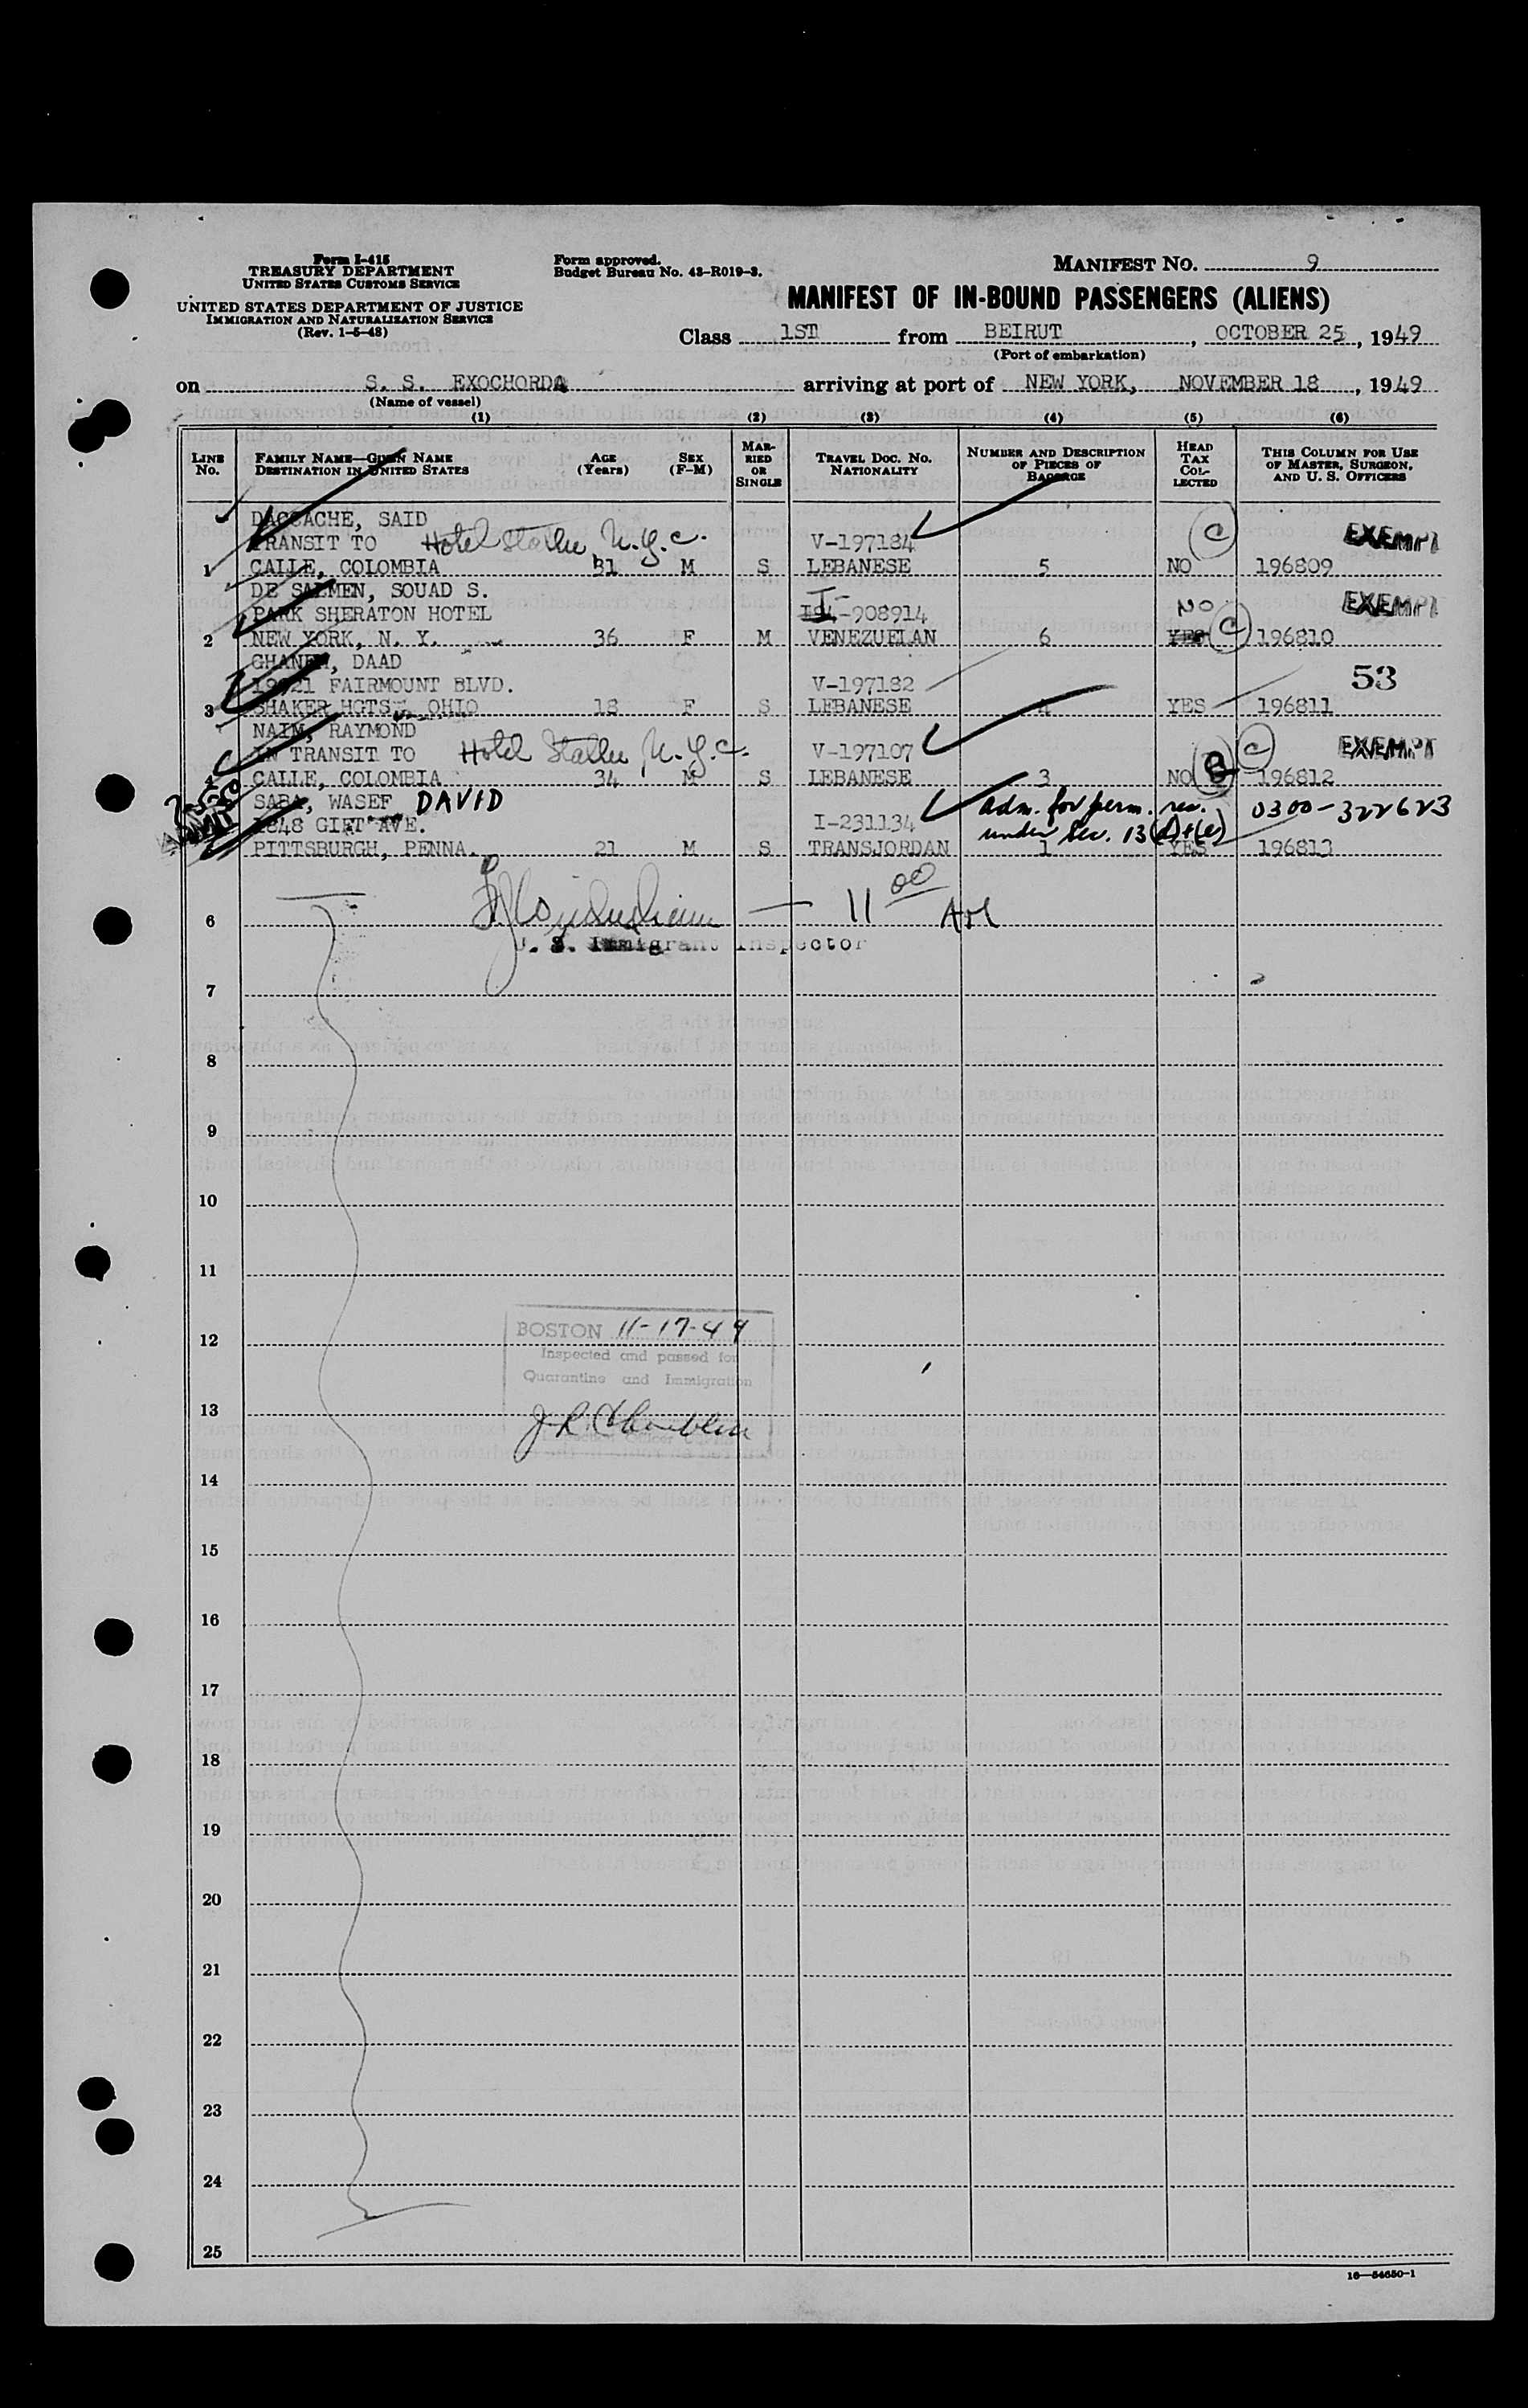 Form I-415
TREASURY DEPARTMENT
UNITED STATES CUSTOMS SERVICE
UNITED STATES DEPARTMENT OF JUSTICE
IMMIGRATION AND NATURALIZATION SERVICE
(Rev. 1-5-48)
Form approved.
Budget Bureau No. 43-R019-3.
MANIFEST NO. 9
MANIFEST OF IN-BOUND PASSENGERS (ALIENS)
Class 1ST from BEIRUT, OCTOBER 25, 1949
(Port of embarkation)
on S. S. EXOCHORDA arriving at port of NEW YORK, NOVEMBER 18, 1949
(Name of vessel)
(1) (2) (3) (4) (5) (6)
LINE No. FAMILY NAME—GIVEN NAME DESTINATION IN UNITED STATES AGE (Years) SEX (F-M) MARRIED OR SINGLE TRAVEL DOC. NO. NATIONALITY NUMBER AND DESCRIPTION OF PIECES OF BAGGAGE HEAD TAX COLLECTED THIS COLUMN FOR USE OF MASTER, SURGEON, AND U. S. OFFICERS
DACCACHE, SAID
TRANSIT TO Hotel Statler N.Y.C. V-197184 C EXEMPT
1 CALLE, COLOMBIA 31 M S LEBANESE 5 NO 196809
DE SALMEN, SOUAD S.
PARK SHERATON HOTEL I-908914 NO EXEMPT
2 NEW YORK, N. Y. 36 F M VENEZUELAN 6 YES C 196810
GHANEM, DAAD
FAIRMOUNT BLVD. V-197182 53
3 SHAKER HGTS., OHIO 18 F S LEBANESE 4 YES 196811
NAIM, RAYMOND
IN TRANSIT TO Hotel Statler N.Y.C. V-197107 C EXEMPT
4 CALLE, COLOMBIA 34 M S LEBANESE 3 NO 196812
SABA, WASEF DAVID adm. for perm. res. 0300-322623
1848 GIFT AVE. I-231134 under Sec. 13(d)+(e)
5 PITTSBURGH, PENNA. 21 M S TRANSJORDAN 1 YES 196813
11 00 AM
6
U. S. Immigrant Inspector
7
8
9
10
11
BOSTON 11-17-49
12
Inspected and passed for
Quarantine and Immigration
13
14
15
16
17
18
19
20
21
22
23
24
25
16—54650-1